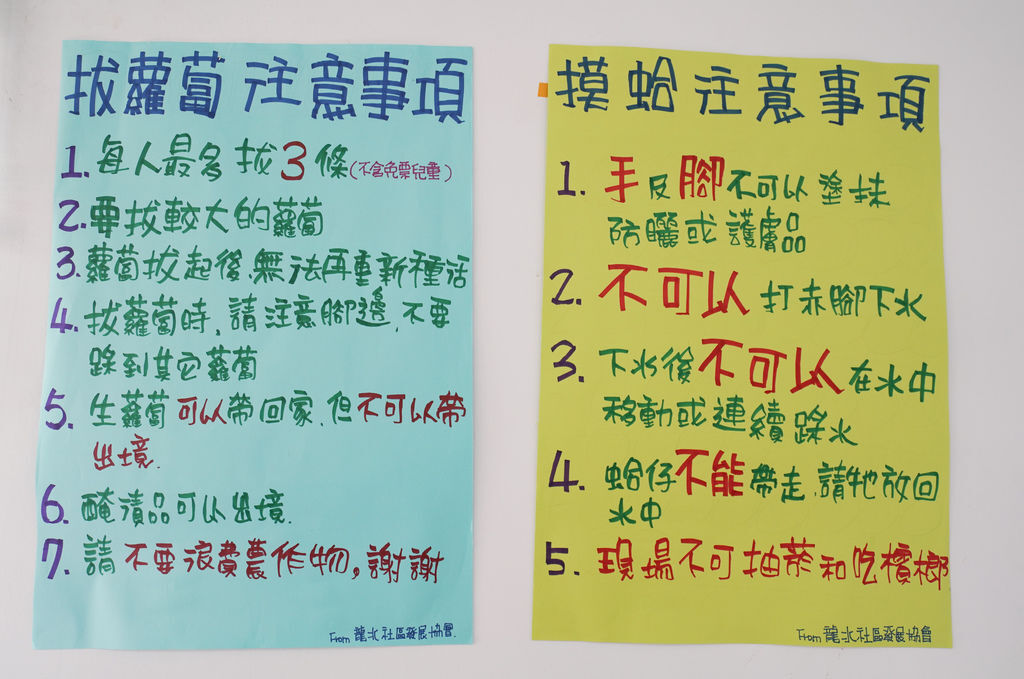 拔蘿蔔注意事項
1. 每人最多拔3條(不含免票兒童)
2. 要拔較大的蘿蔔
3. 蘿蔔拔起後,無法再重新種活
4. 拔蘿蔔時,請注意腳邊,不要
踩到其它蘿蔔
5. 生蘿蔔可以帶回家,但不可以帶
出境.
6. 醃漬品可以出境.
7. 請不要浪費農作物,謝謝
From 龍水社區發展協會.
摸蛤注意事項
1. 手及腳不可以塗抹
防曬或護膚品
2. 不可以打赤腳下水
3. 下水後不可以在水中
移動或連續踩水
4. 蛤仔不能帶走,請牠放回
水中
5. 現場不可抽菸和吃檳榔
From 龍水社區發展協會